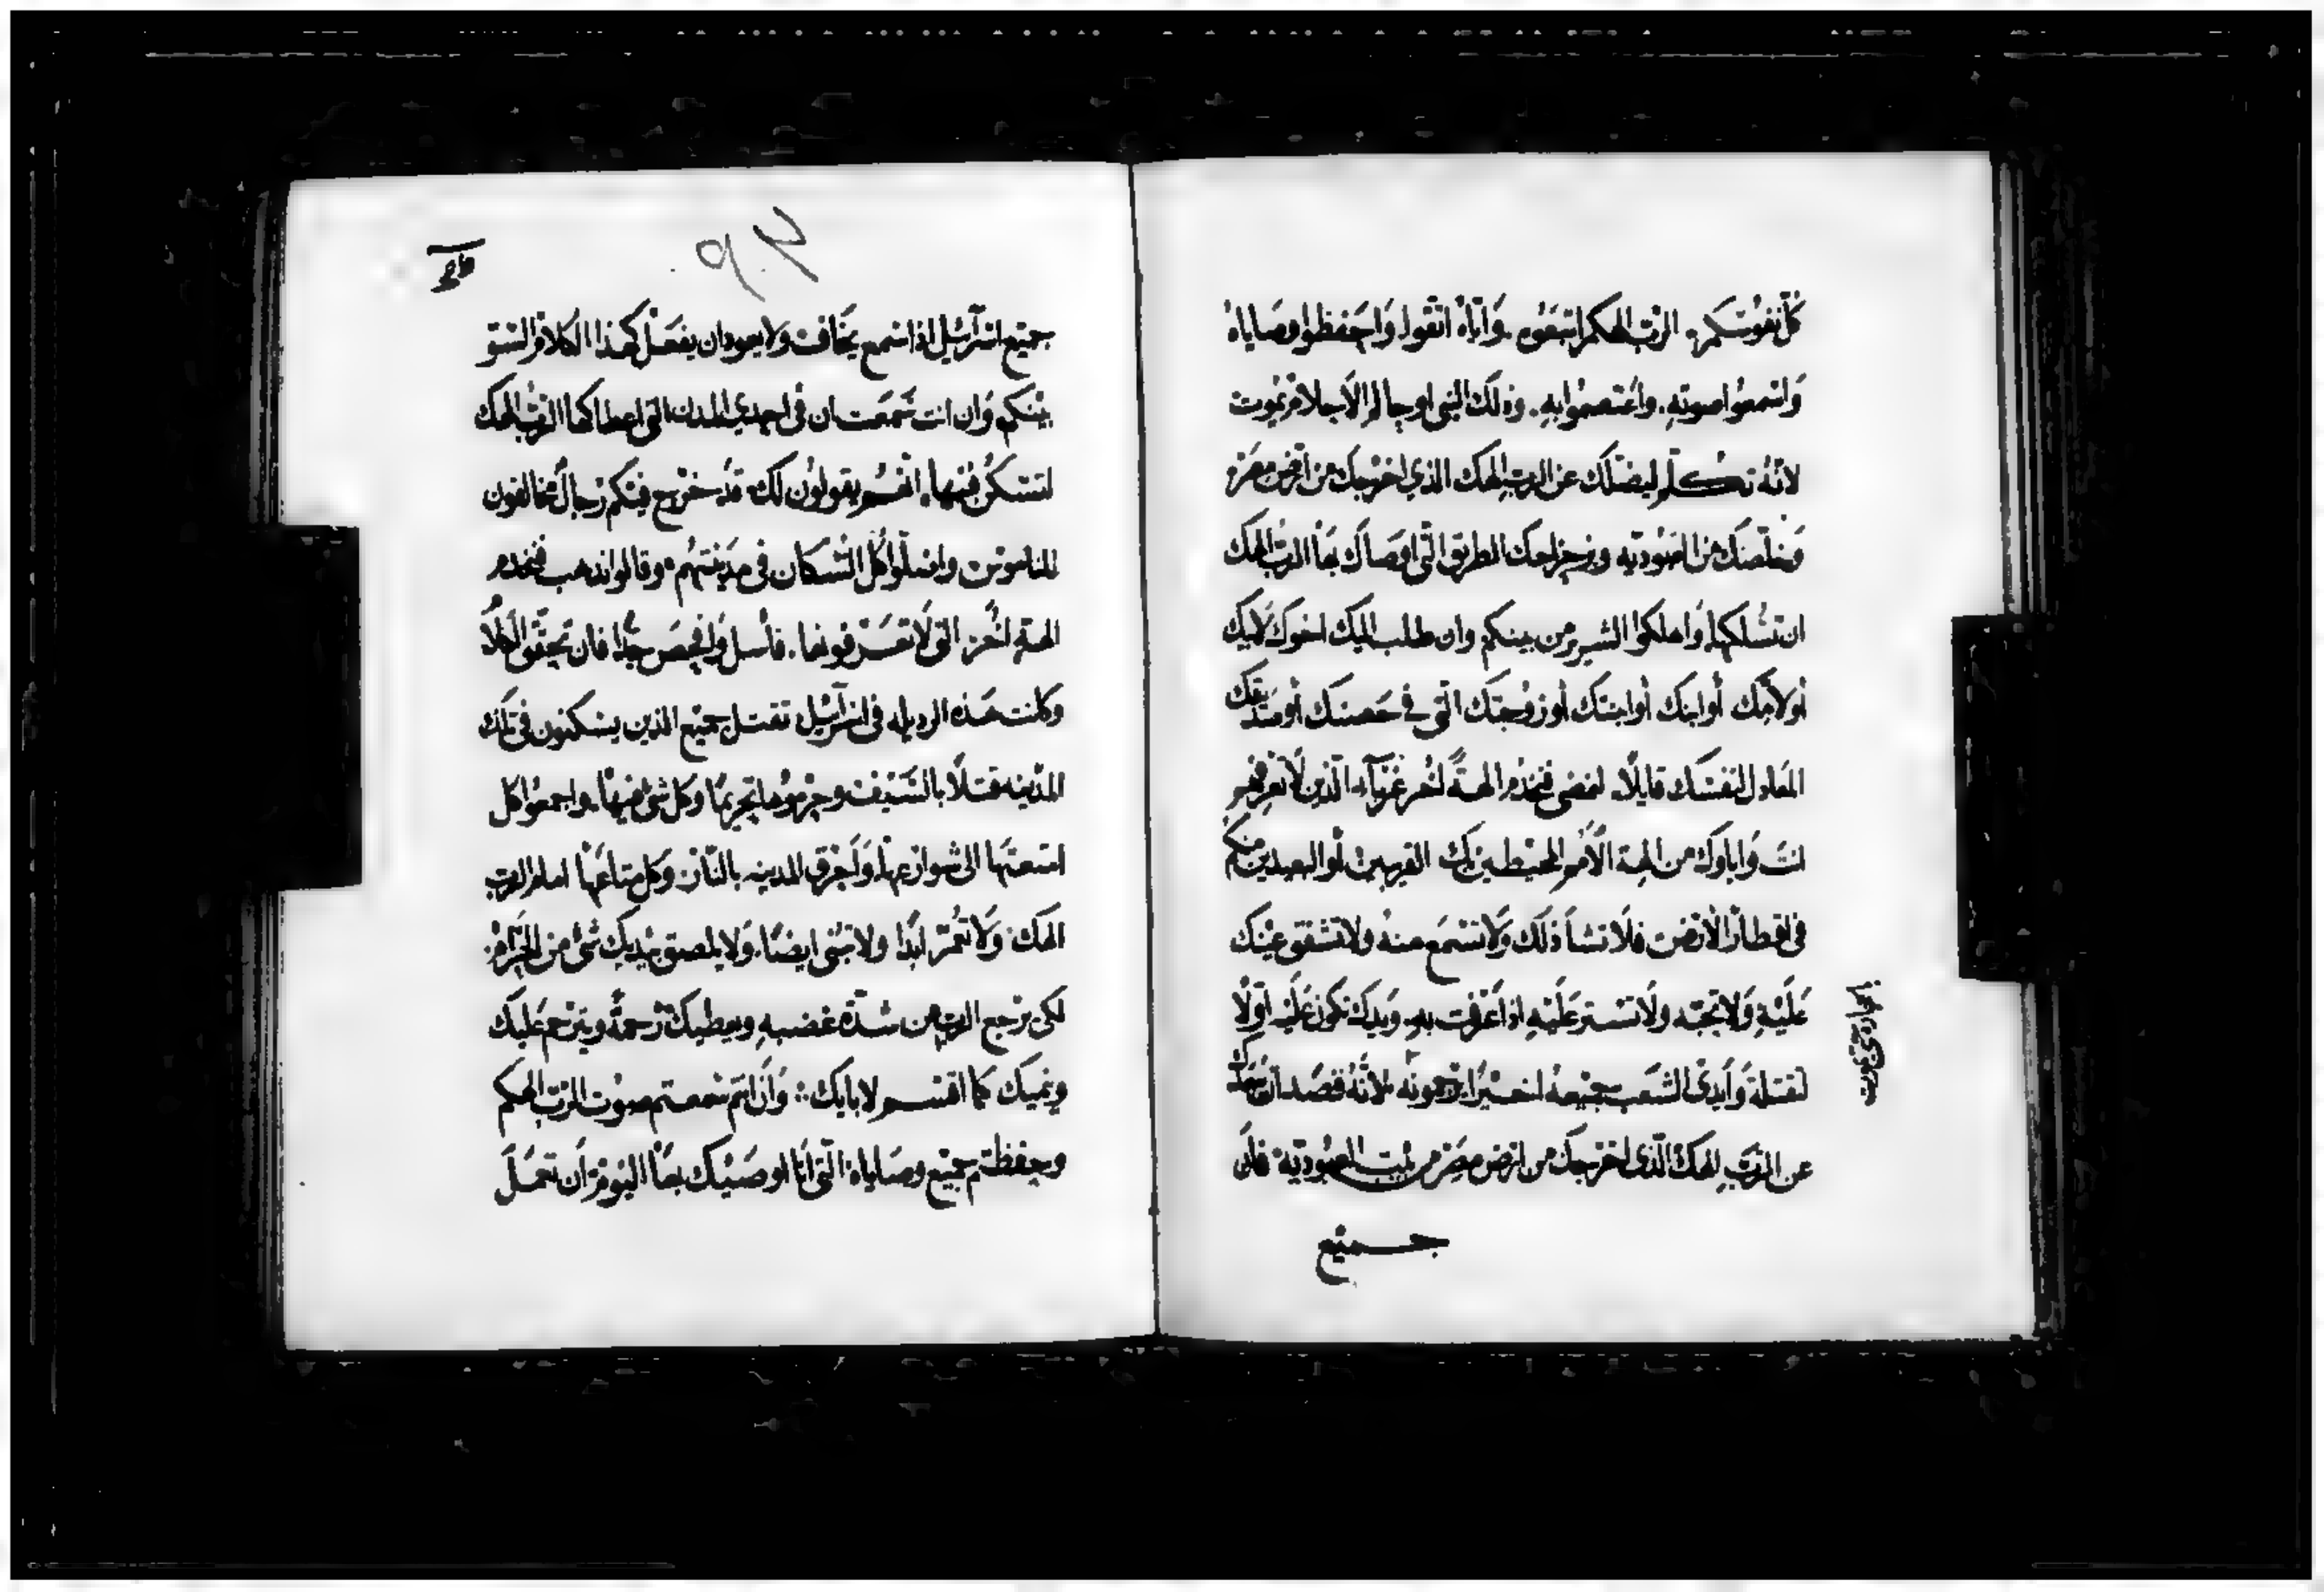 كل نفوسكم. الرب الهكم اتبعوه. واياه اتقوا واحفظوا وصاياه
واسمعوا صوته. واعتصموا به. وذلك النبي او حالم الاحلام يموت
لانه تكلم ليضلك عن الرب الهك الذي اخرجك من ارض مصر
وخلصك من العبوديه ويزحزحك الطريق التي اوصاك بها الرب الهك
ان تسلكها واهلكوا الشرير من بينكم وان طلب اليك اخوك لابيك
أو لامك أو ابنك أو ابنتك أو زوجتك التي في حضنك أو صديقك
المعادل لنفسك قايلا. امضى فنخدم الهة اخر غرباء الذين لا تعرفهم
انت واباوك من الهة الأمم المحيطين بك القريبين أو البعيدين منكم
في اقطار الارض فلا تشا ذلك ولا تسمع منه ولا تشفق عينك
عليه ولا تحبه ولا تستر عليه اذا عرفت به. ويدك تكون عليه اولا
لقتله وأيدى الشعب جميعه اخيرا يرجمونه لانه قصد ان يبعدك
عن الرب الهك الذى اخرجك من ارض مصر من بيت العبودية. فان
جميع
جميع اسرآئيل اذا سمع يخافف ولا يعود ان يفعل كهذا الكلام السو
بينكم وان انت سمعت ان في احدي المدن التي اعطاكها الرب الهك
لتسكن فيها. انفسهم يقولون لك قد خرج فيكم رجال مخالفون
للناموس واضلوا كل السكان في مدينتهم. وقالوا نذهب فنخدم
الهة اخر التي لا تعرفونها. فأسل وافحص جدا فان تحقق الكلام
وكانت هذه الرديله في اسرآئيل تقتل جميع الذين يسكنون في تلك
المدينه قتلا بالسيف وجرموها تجريما وكل شى فيها. واجمعوا كل
امتعتها الى شوارعها. وأحرق المدينه بالنار وكل متاعها امام الرب
الهك. ولا تعمر ابدا ولا تبنى ايضا. ولا يلصق بيديك شئ من الحرام
لكى يرجع الرب من شدة غضبه ويعطيك رحمة ويترحم عليك
وينميك كما اقسم لابايك. وأن انتم سمعتم صوت الرب الهكم
وحفظتم جميع وصاياه التى أنا اوصيك بها اليوم ان تعمل